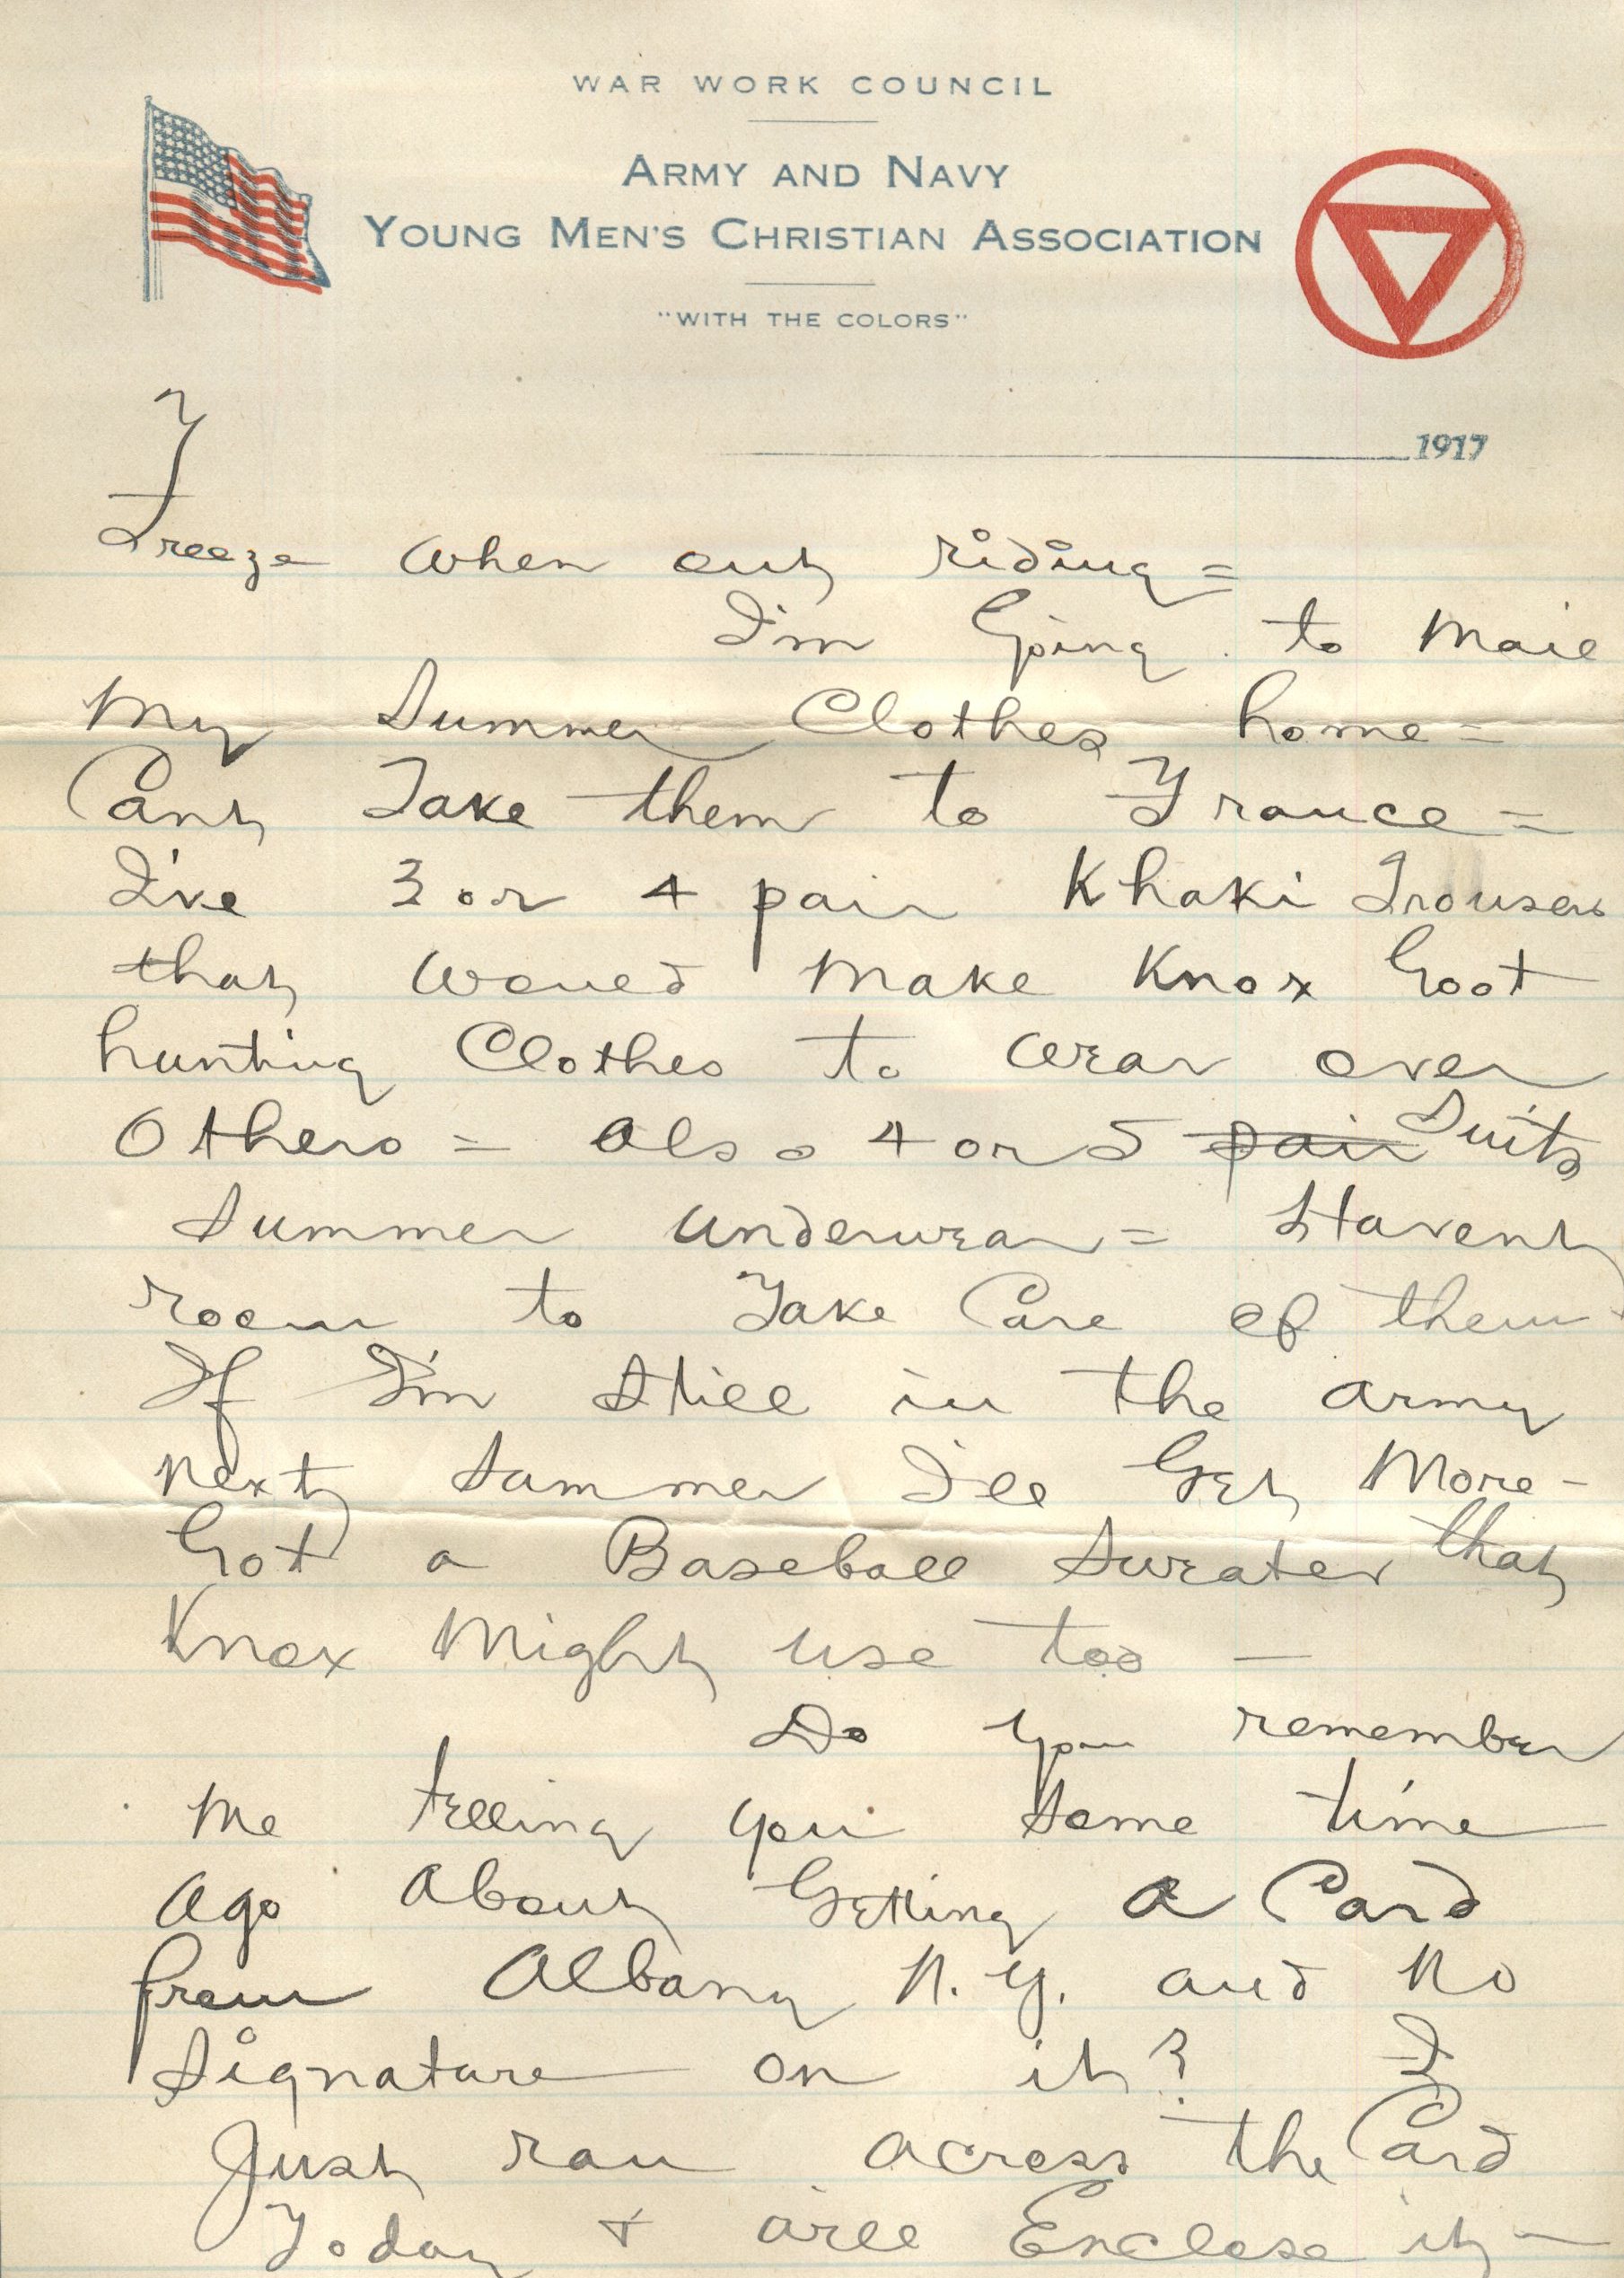 WAR WORK COUNCIL
ARMY AND NAVY
YOUNG MEN'S CHRISTIAN ASSOCIATION
"WITH THE COLORS"
1917
Freeze when out riding =
I'm Going to Mail
My Summer Clothes home =
Cant Take them to France =
I've 3 or 4 pair Khaki Trousers
that would Make Knox Good
hunting Clothes to wear over
Others = also 4 or 5 ~~pair~~ Suits
Summer underwear = Havent
room to Take Care of them
If I'm Still in the army
next Summer I'll Get More -
Got a Baseball Sweater that
Knox Might use too —
Do you remember
Me telling you Some time
Ago About Getting A Card
from Albany N.Y. and No
Signature on it? I
Just ran across the Card
Today + will Enclose it —